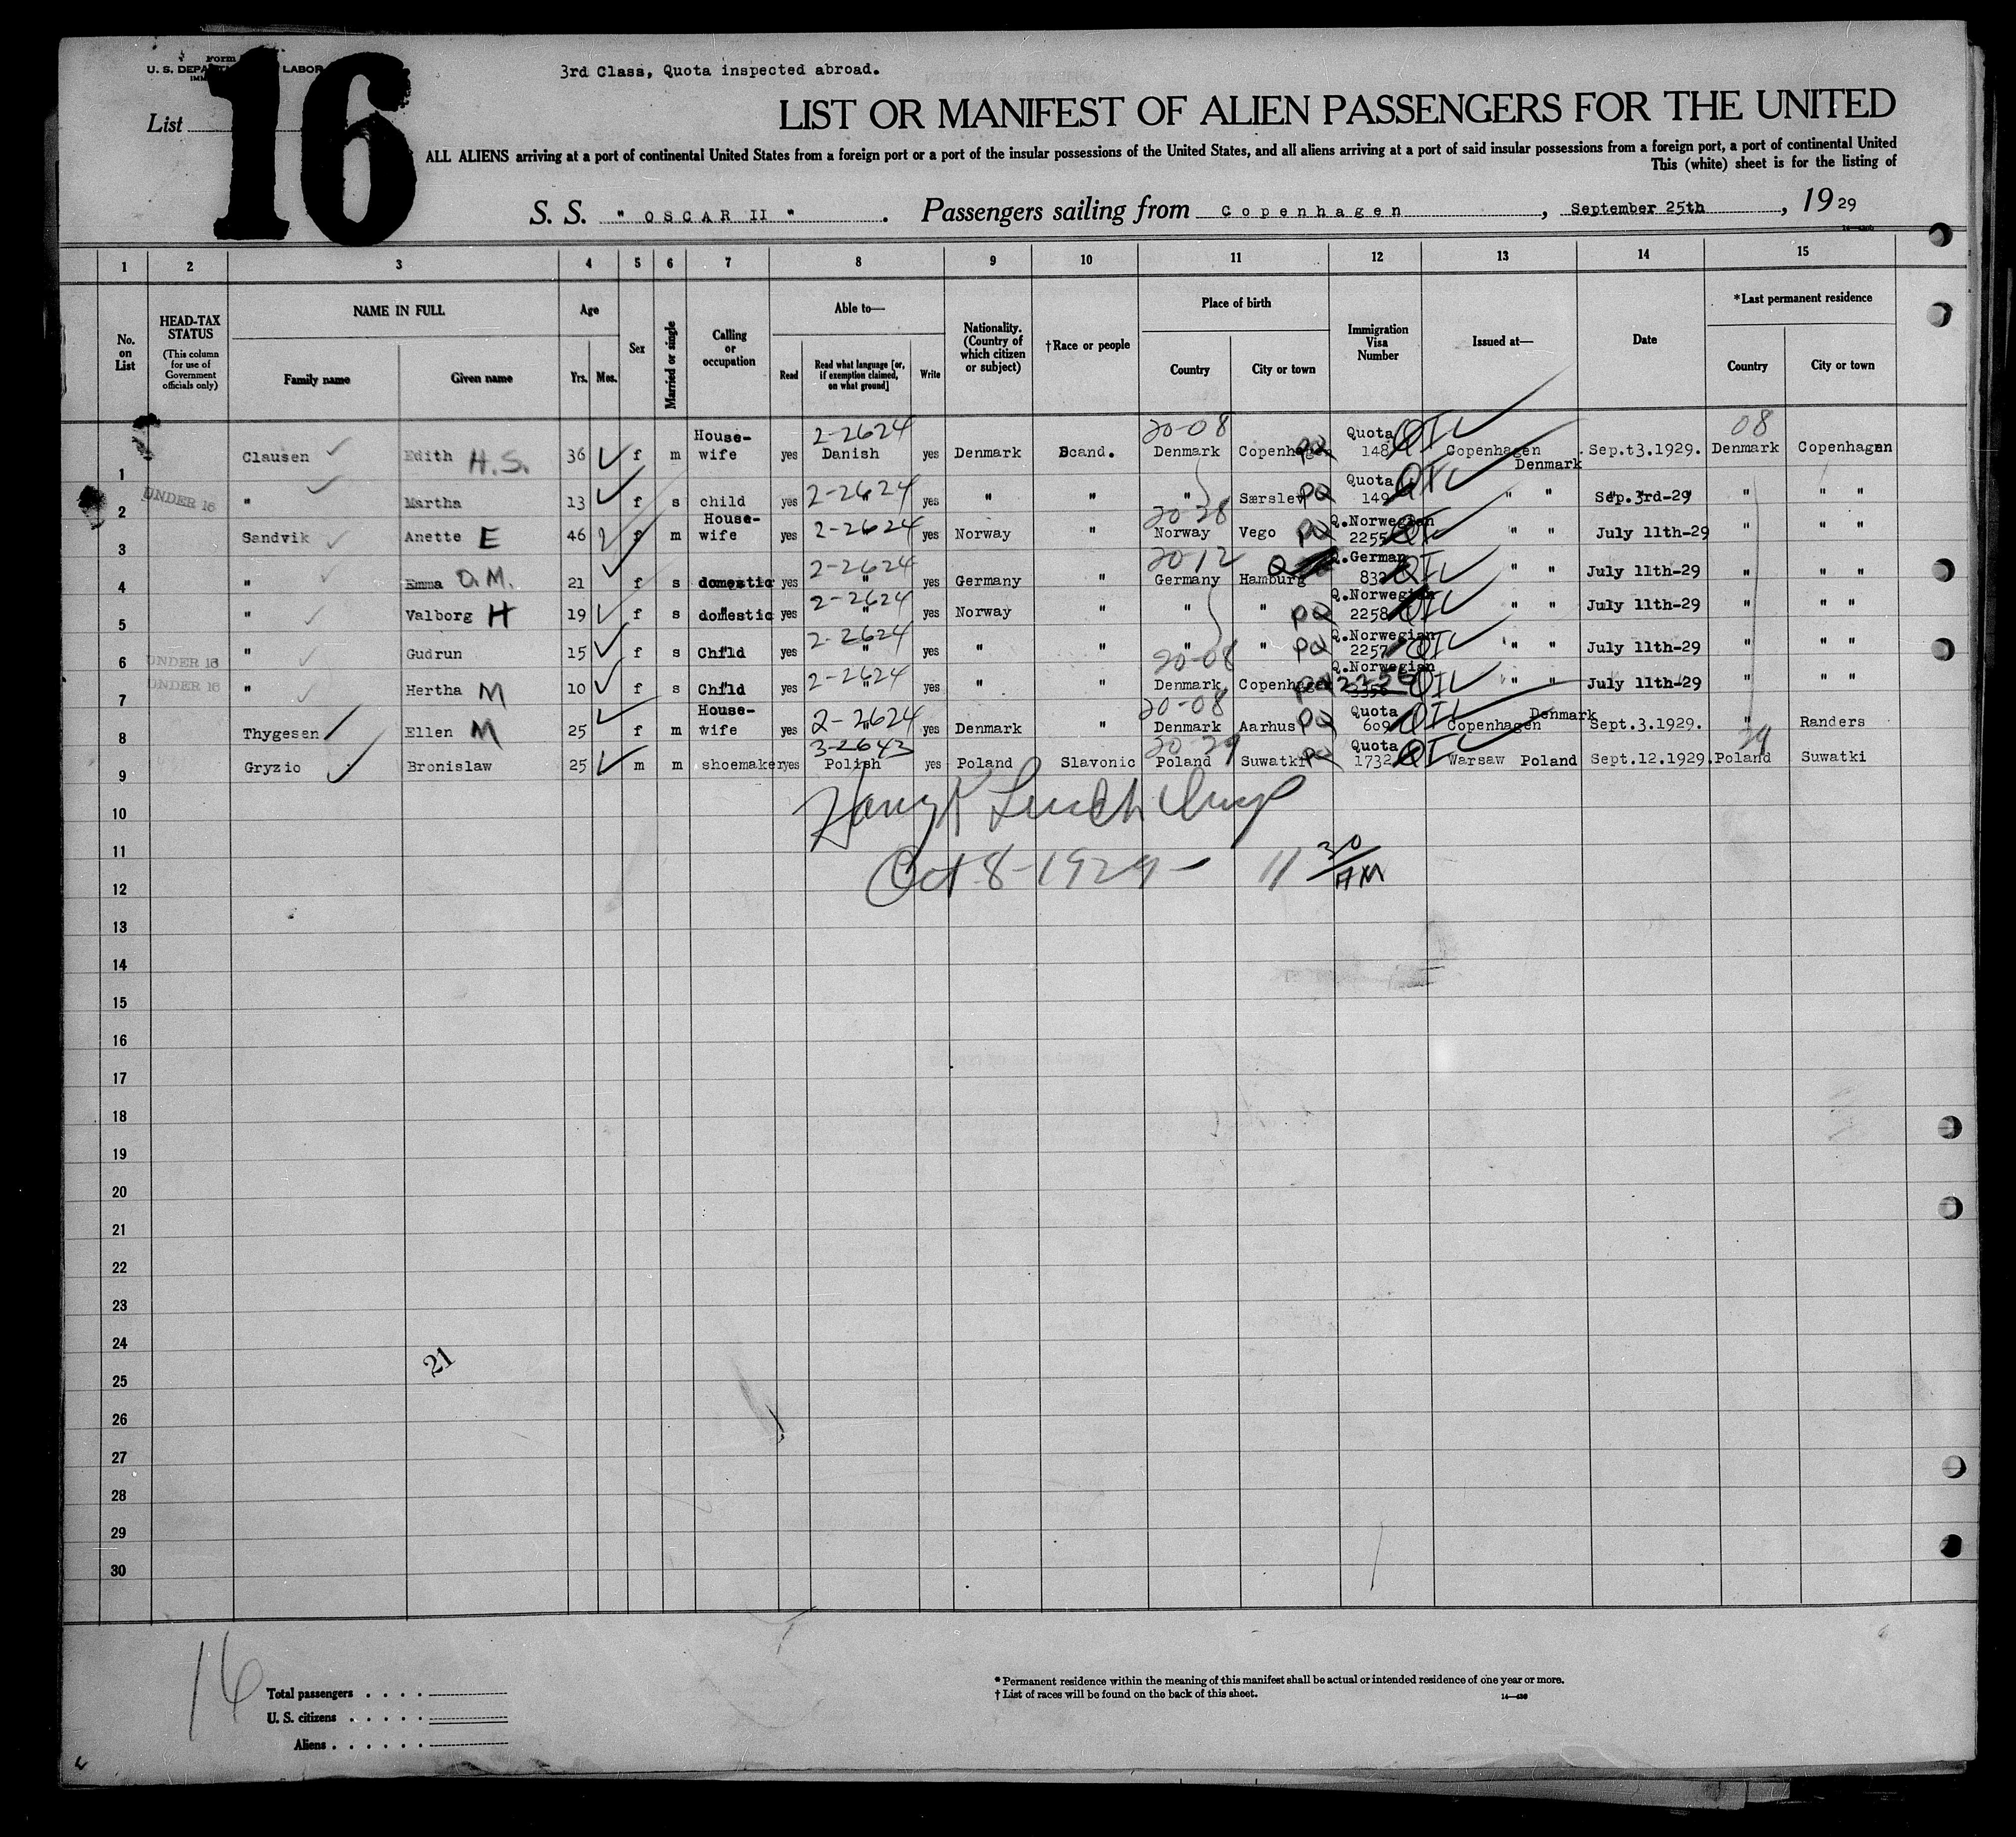 16
Form
U. S. DEPA LABOR
IMM
3rd Class, Quota inspected abroad.
List
LIST OR MANIFEST OF ALIEN PASSENGERS FOR THE UNITED
ALL ALIENS arriving at a port of continental United States from a foreign port or a port of the insular possessions of the United States, and all aliens arriving at a port of said insular possessions from a foreign port, a port of continental United
This (white) sheet is for the listing of
S. S. " OSCAR II " . Passengers sailing from Copenhagen , September 25th , 19 29
1 2 3 4 5 6 7 8 9 10 11 12 13 14 15
No. on List
HEAD-TAX STATUS (This column for use of Government officials only)
NAME IN FULL
Family name Given name
Age
Yrs. Mos.
Sex
Married or single
Calling or occupation
Able to—
Read Read what language [or, if exemption claimed, on what ground] Write
Nationality. (Country of which citizen or subject)
†Race or people
Place of birth
Country City or town
Immigration Visa Number
Issued at—
Date
*Last permanent residence
Country City or town
1 Clausen Edith H.S. 36 f m House-wife yes 2-2624 Danish yes Denmark Scand. 20-08 Denmark Copenhagen PQ Quota 148 QIV Copenhagen Denmark Sept.3.1929. 08 Denmark Copenhagen
2 UNDER 16 " Martha 13 f s child yes 2-2624 " yes " " " Særslev PQ Quota 149 QIV " " Sep.3rd-29 " " "
3 Sandvik Anette E 46 f m House-wife yes 2-2624 yes Norway " 20-28 Norway Vego PQ Q.Norwegian 2255 QIV " " July 11th-29 " " "
4 " Emma O.M. 21 f s domestic yes 2-2624 " yes Germany " 20 12 Germany Hamburg Q Q.German 832 QIV " " July 11th-29 " " "
5 " Valborg H 19 f s domestic yes 2-2624 " yes Norway " " " PQ Q.Norwegian 2258 QIV " " July 11th-29 " " "
6 UNDER 16 " Gudrun 15 f s Child yes 2-2624 " yes " " " " PQ Q.Norwegian 2257 QIV " " July 11th-29 " " "
7 UNDER 16 " Hertha M 10 f s Child yes 2-2624 " yes " " 20-08 Denmark Copenhagen PQ Q.Norwegian 2256 3356 QIV " " July 11th-29 " " "
8 Thygesen Ellen M 25 f m House-wife yes 2-2624 " yes Denmark " 20-08 Denmark Aarhus PQ Quota 609 QIV Copenhagen Denmark Sept.3.1929. " Randers
9 Gryzio Bronislaw 25 m m shoemaker yes 3-2643 Polish yes Poland Slavonic 20-29 Poland Suwatki PQ Quota 1732 QIV Warsaw Poland Sept.12.1929. 29 Poland Suwatki
10
11
Oct 8-1929- 11 30/AM
12
13
14
15
16
17
18
19
20
21
22
23
24
21
25
26
27
28
29
30
16
Total passengers . . . .
U. S. citizens . . . . .
Aliens . . . . . .
* Permanent residence within the meaning of this manifest shall be actual or intended residence of one year or more.
† List of races will be found on the back of this sheet.
14—430